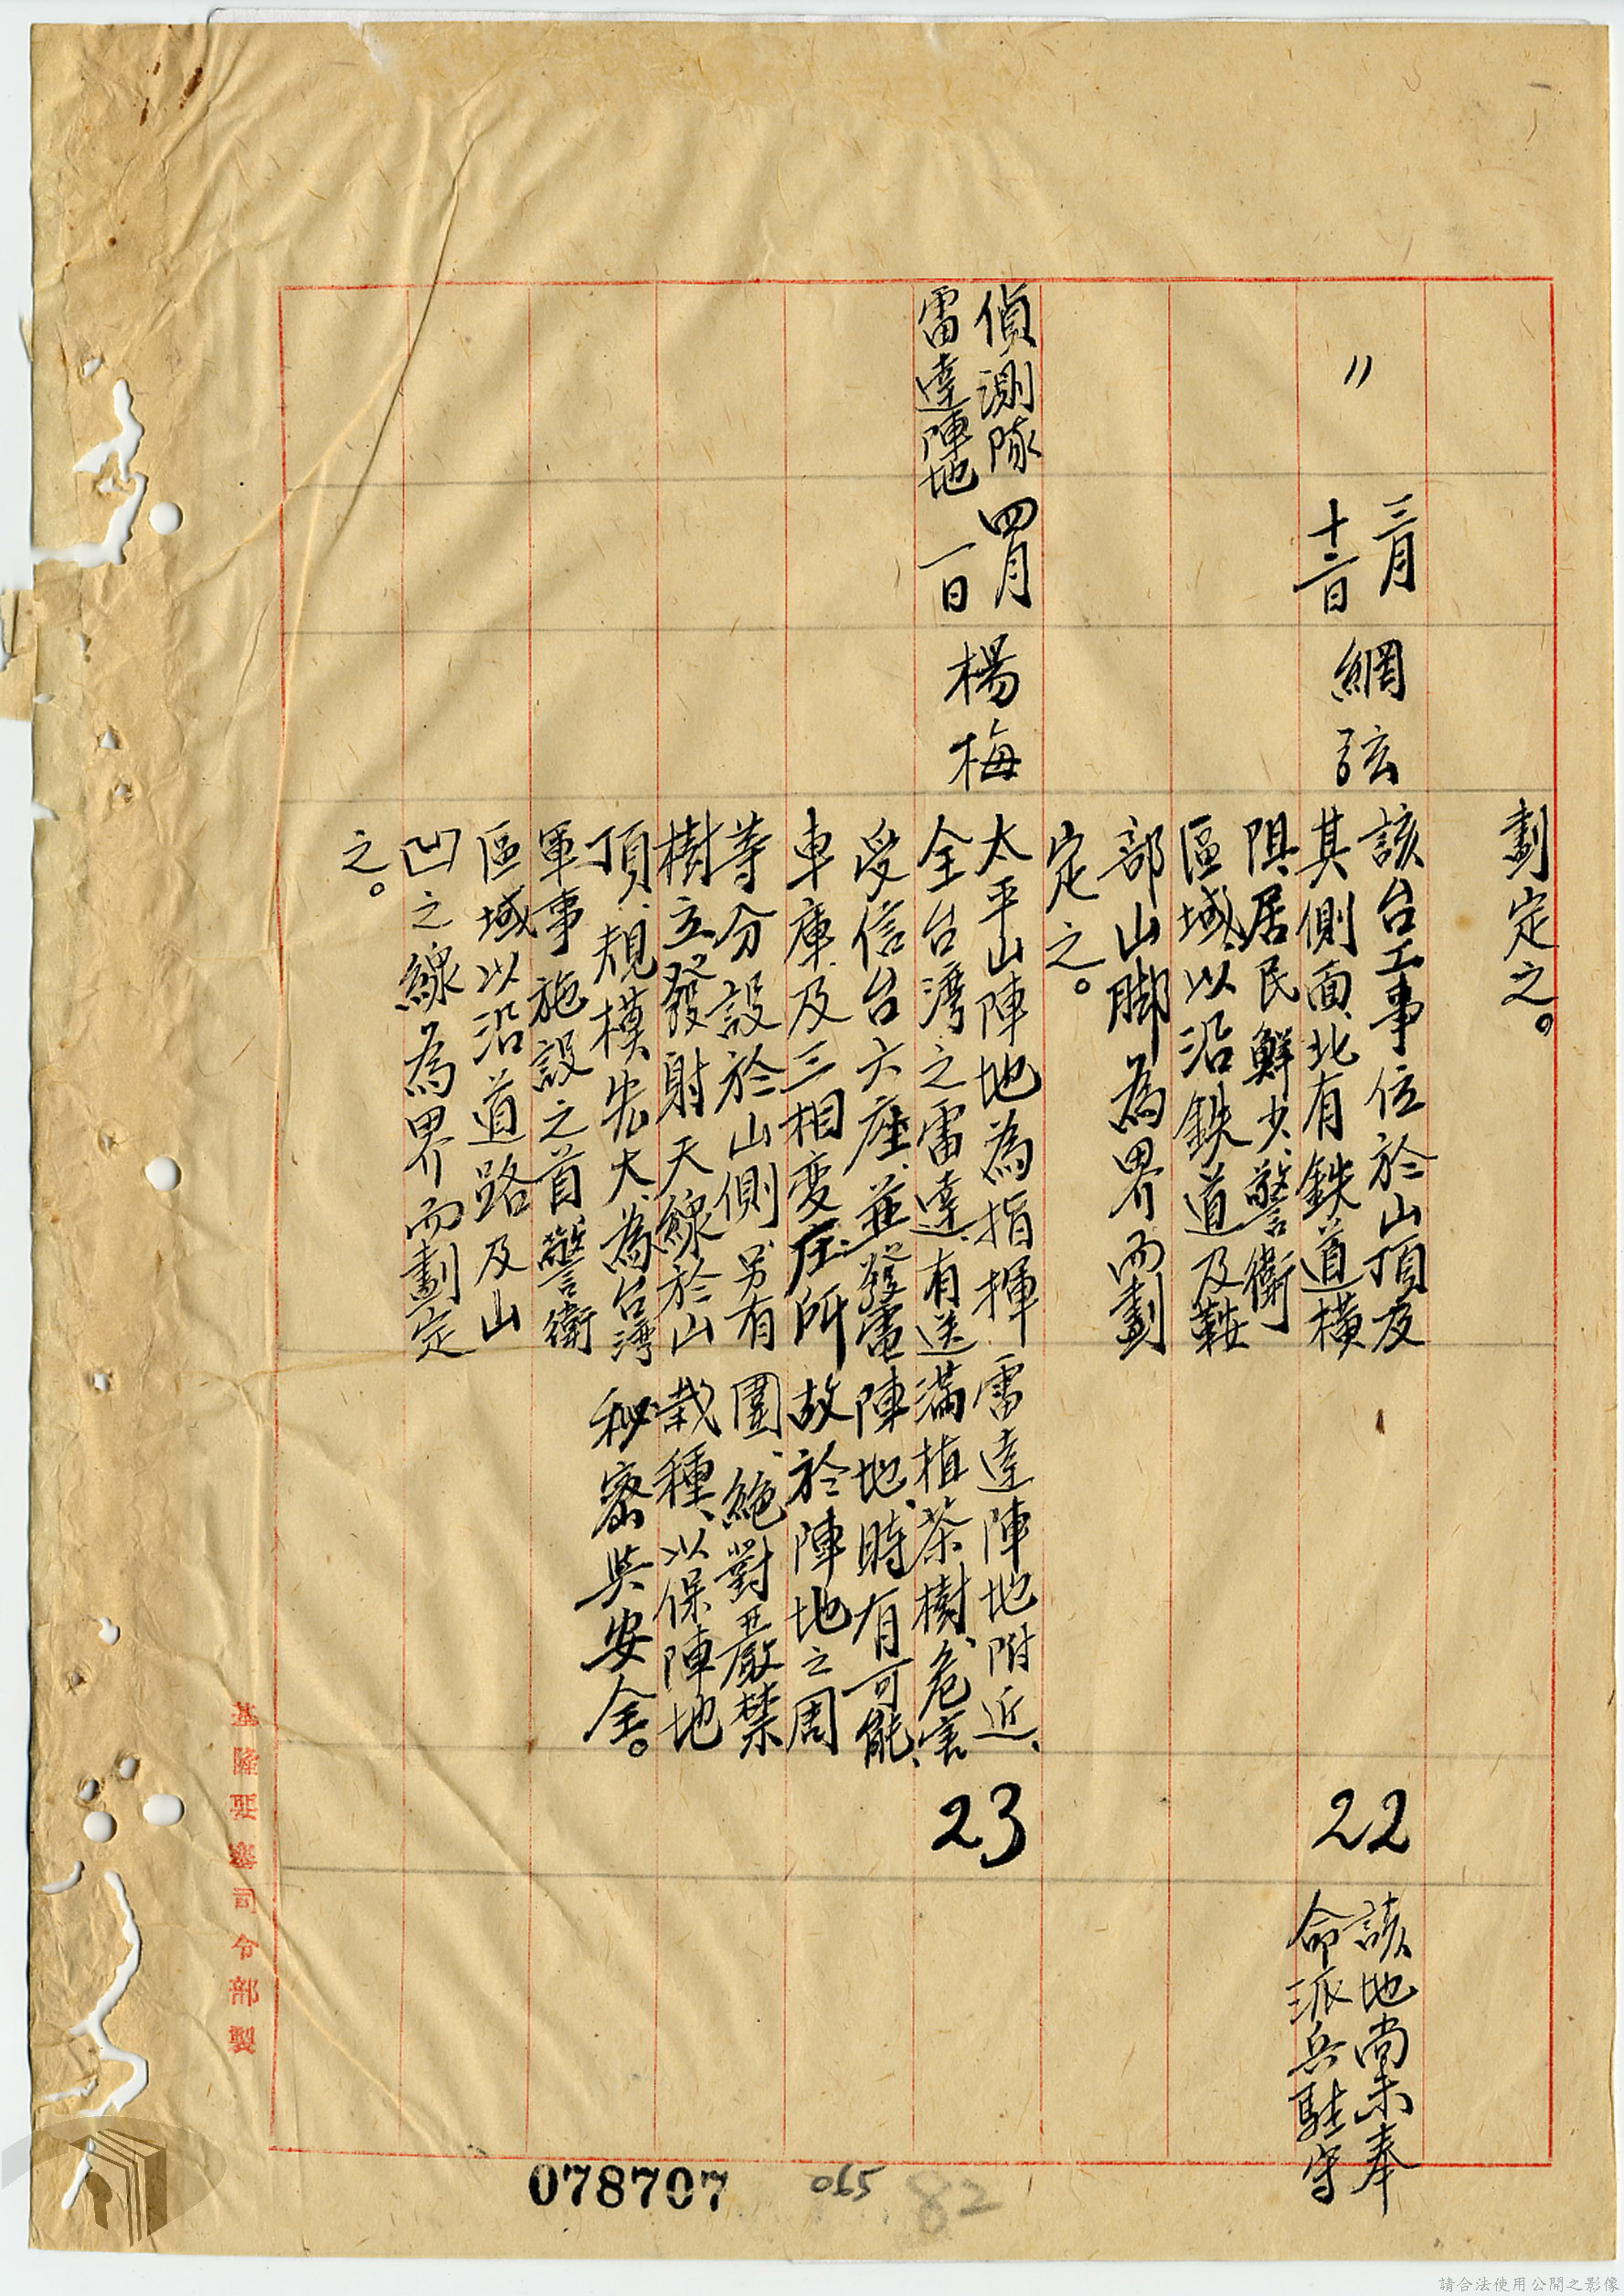 劃定之。
〃
三月
十二日
網弦
該台工事位於山頂及
其側面、北有鉄道橫
阻、居民鮮少、警衛
區域、以沿鉄道及鞍
部山脚為界而劃
定之。
22
該地尚未奉
命派兵駐守
偵測隊
雷達陣地
四月
一日
楊梅
太平山陣地為指揮
全台湾之雷達、有送
受信台六座、並發電
車庫、及三相变圧所
等分設於山側、另有
樹立發射天線於山
頂、規模宏大、為台湾
軍事施設之首、警衛
區域以沿道路及山
凹之線為界而劃定
之。
雷達陣地附近、
滿植茶樹、危害
陣地、時有可能、
故於陣地之周
圍、絶對嚴禁
栽種、以保陣地
秘密與安全。
23
基隆要塞司令部製
078707
065
82
請合法使用公開之影像